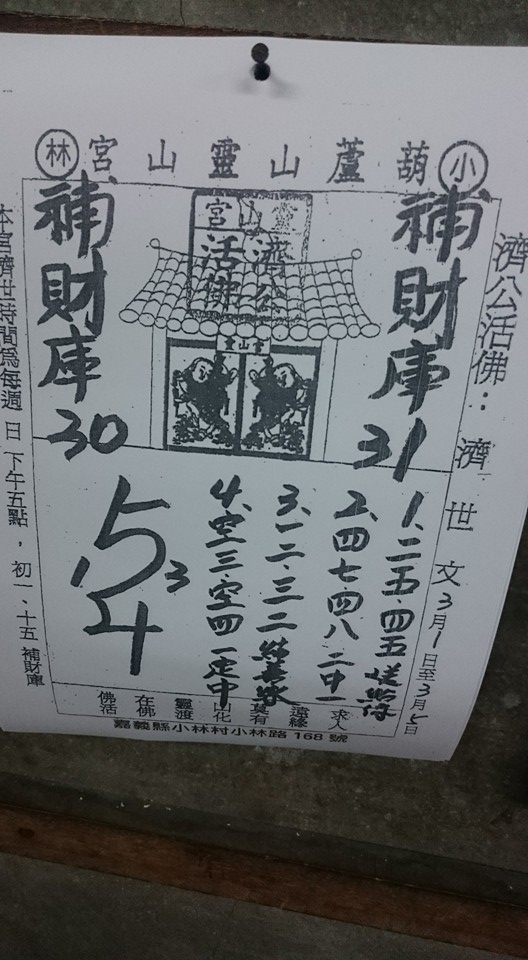 小葫蘆山靈山宮林
濟公活佛：濟世文3月1日至3月5日
補財庫31
靈山宮
濟公
活佛
靈山宮
補財庫30
1、二五、四五送你
2、四七、四八二中一
3、一二、三二結善緣
4、空三、空四一定中
1 5 3
4
求人
遠緣
莫有
山化
靈渡
在佛
佛活
嘉義縣小林村小林路168號
本宮濟世時間為每週日下午五點，初一、十五補財庫